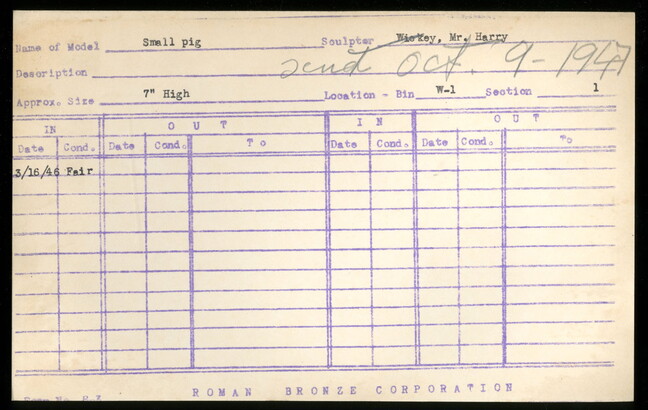 Name of Model Small pig Sculptor Wickey, Mr. Harry
Description Send Oct. 9-1947
Approx. Size 7" High Location - Bin W-1 Section 1
IN OUT IN OUT
Date Cond. Date Cond. To Date Cond. Date Cond. To
3/16/46 Fair
ROMAN BRONZE CORPORATION